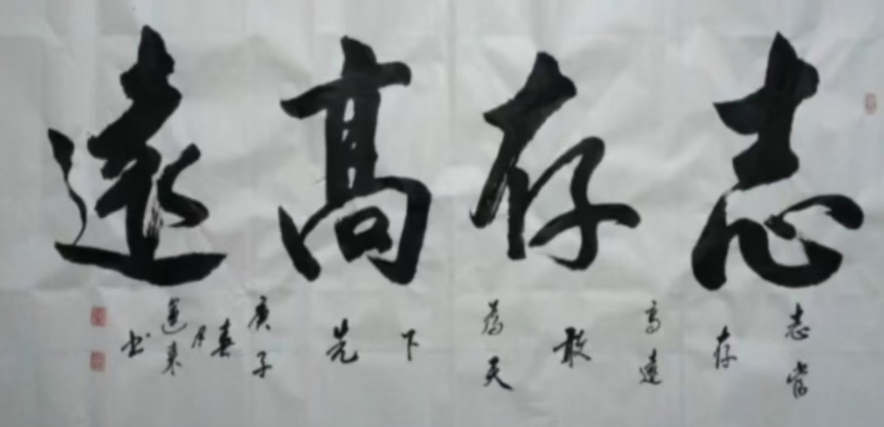 志存高遠
志當
存
高遠
敢
為天
下
先
庚子
春
月
蓬萊
书